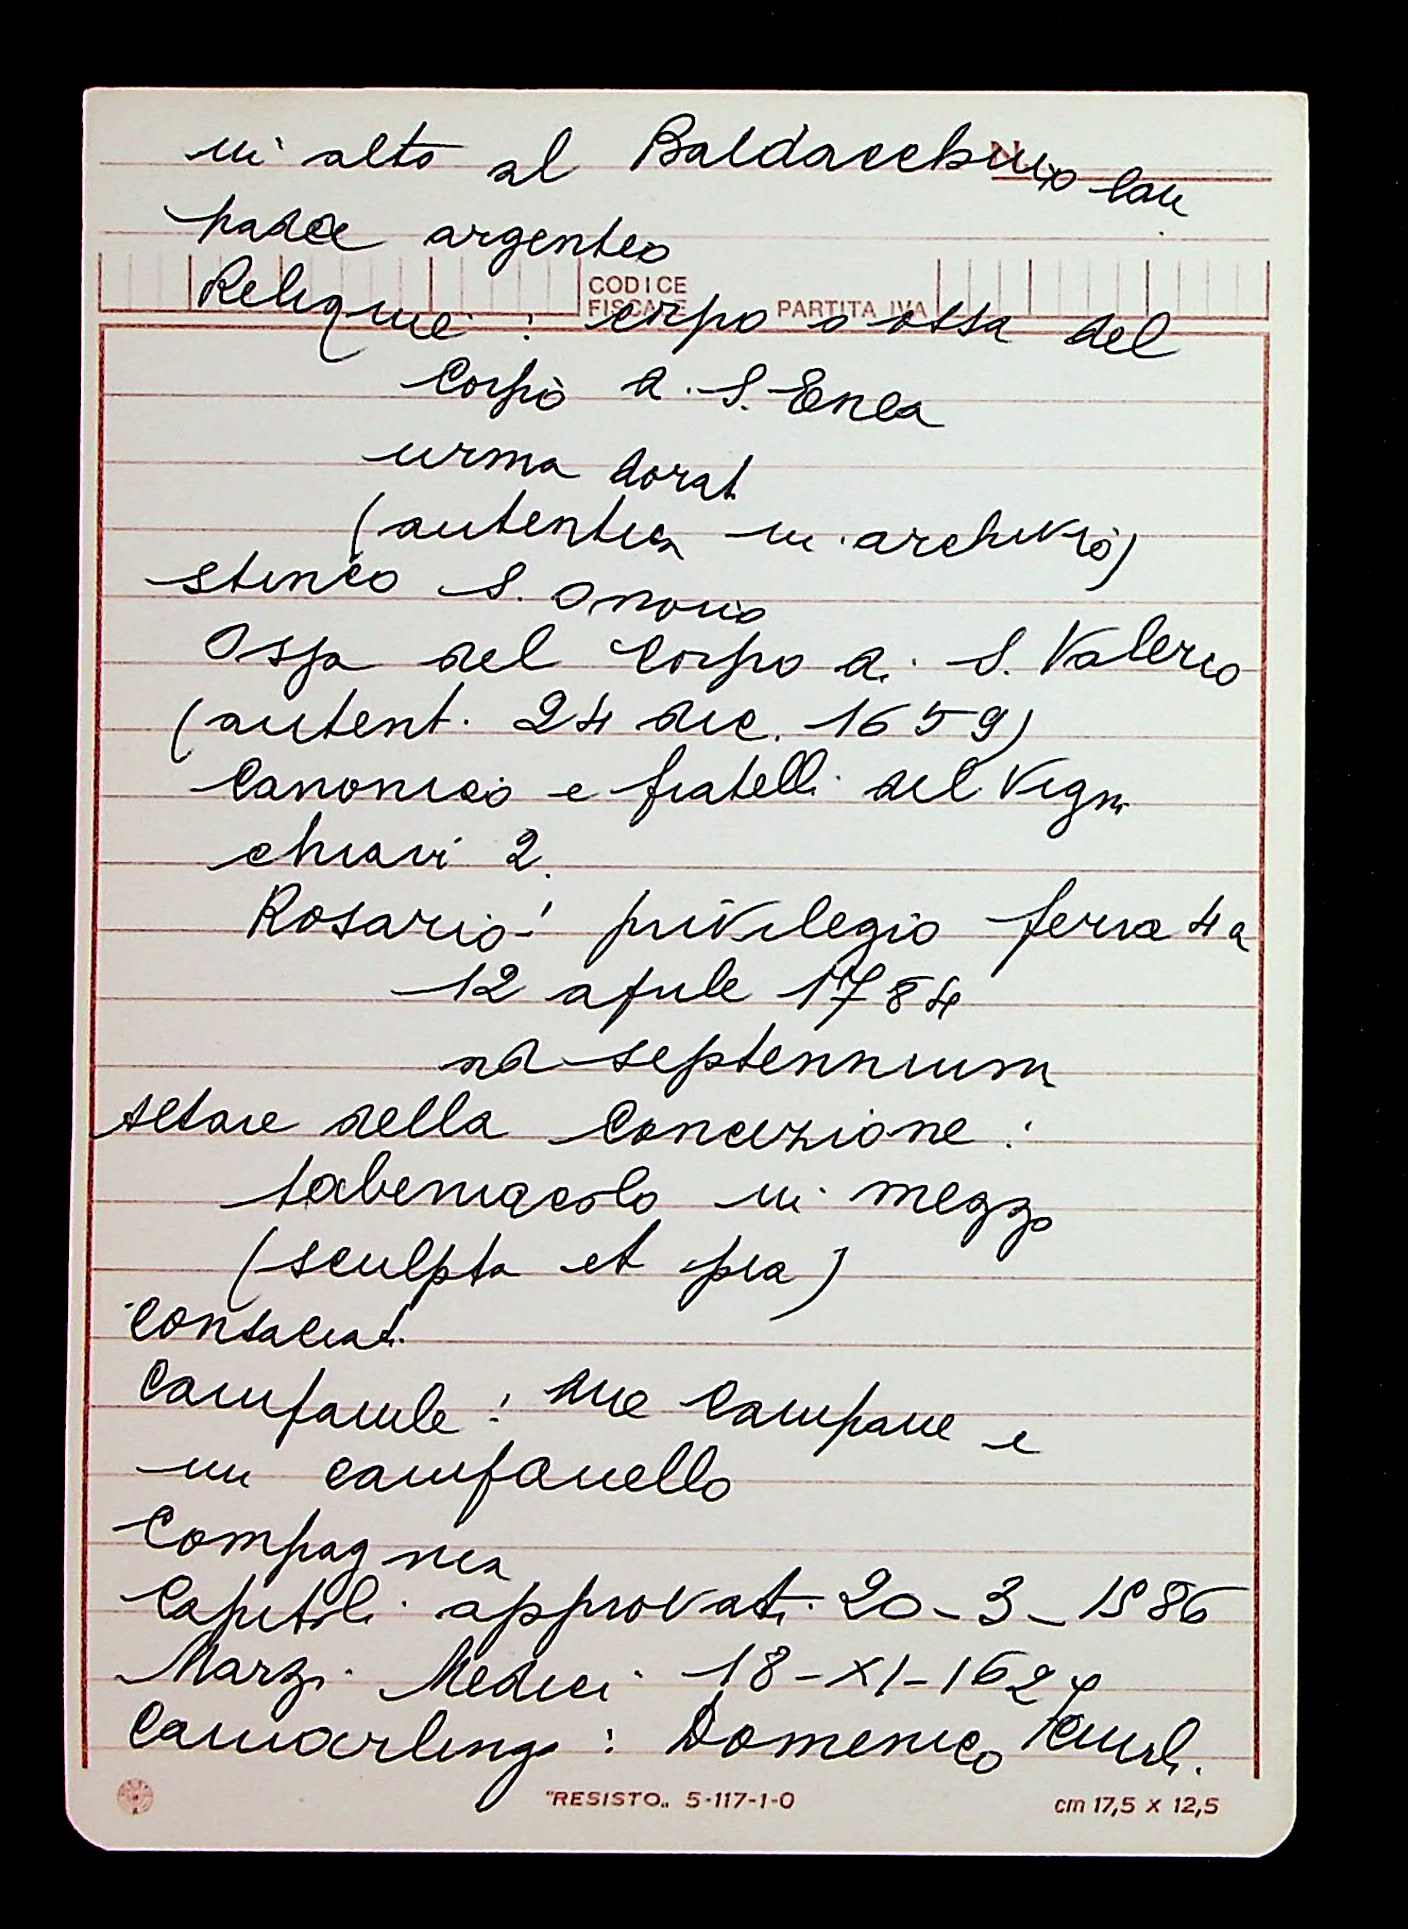 in alto al Baldacchino lam
pade argenteo
CODICE
FISCALE PARTITA IVA
Reliquie: corpo o ossa del
Corpo d. S. Enea
urna dorat
(autentica in archivio)
stinco S. Onorio
Ossa del Corpo d. S. Valerio
(autent. 24 dic. 1659)
Canonico e fratelli del Vigna
chiavi 2.
Rosario: privilegio feria 4a
12 aprile 1784
ad septennium
Altare della Concezione:
tabernacolo in mezzo
(sculpta et pia)
Consacrat.
Campanile: due Campane e
un campanello
Compagnia
Capitoli approvati 20-3-1586
Marzi Medici 18-XI-162
Camarlingo: Domenico
"RESISTO" 5-117-1-0 cm 17,5 x 12,5